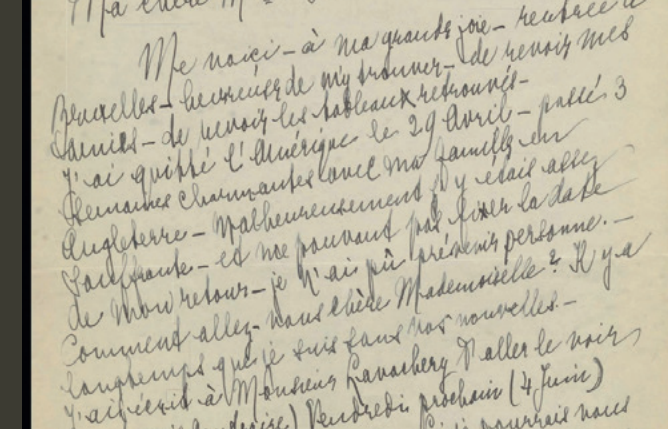 Ma chère M
Me voici - à ma grande joie - rentrée à
Bruxelles - heureuse de m'y trouver - de revoir mes
amies - de revoir les tableaux retrouvés -
J'ai quitté l'Amérique le 29 Avril - passé 3
semaines charmantes avec ma famille en
Angleterre - Malheureusement j'y étais assez
souffrante - et ne pouvant pas fixer la date
de mon retour - je n'ai pû prévenir personne. -
Comment allez-vous chère Mademoiselle? Il y a
longtemps que je suis sans vos nouvelles. -
J'ai écrit à Monsieur Lavachery d'aller le voir
Vendredi prochain (4 Juin)
pourrais vous